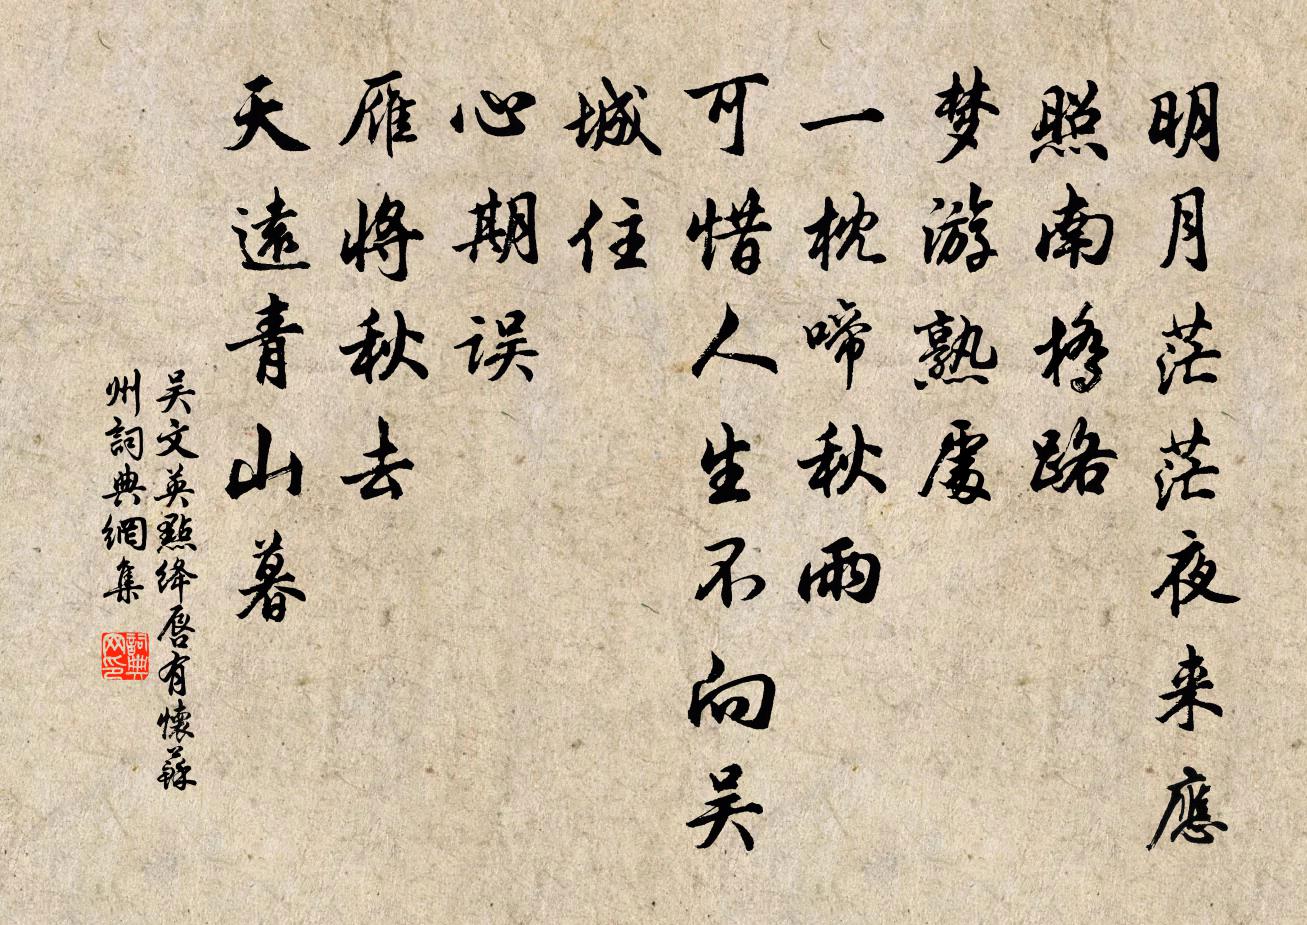 明月茫茫夜来應
照南橋路
梦游熟處
一枕啼秋雨
可惜人生不向吴
城住
心期误
雁将秋去
天遠青山暮
吴文英點绛唇有懷蘇
州詞典網集
詞典
网印